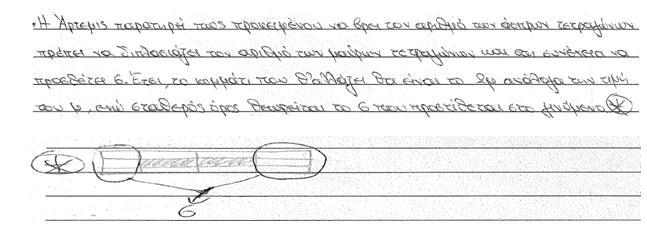 • Η Άρτεμις παρατηρεί πως προκειμένου να βρει τον αριθμό των άσπρων τετραγώνων
πρέπει να διπλασιάζει τον αριθμό των μαύρων τετραγώνων και στη συνέχεια να
προσθέτει 6. Έτσι, το κομμάτι που θ'αλλάζει θα είναι το 2ψ ανάλογα την τιμή
του ψ, ενώ σταθερός όρος θεωρείται το 6 που προστίθεται στο γινόμενο. *
*
6